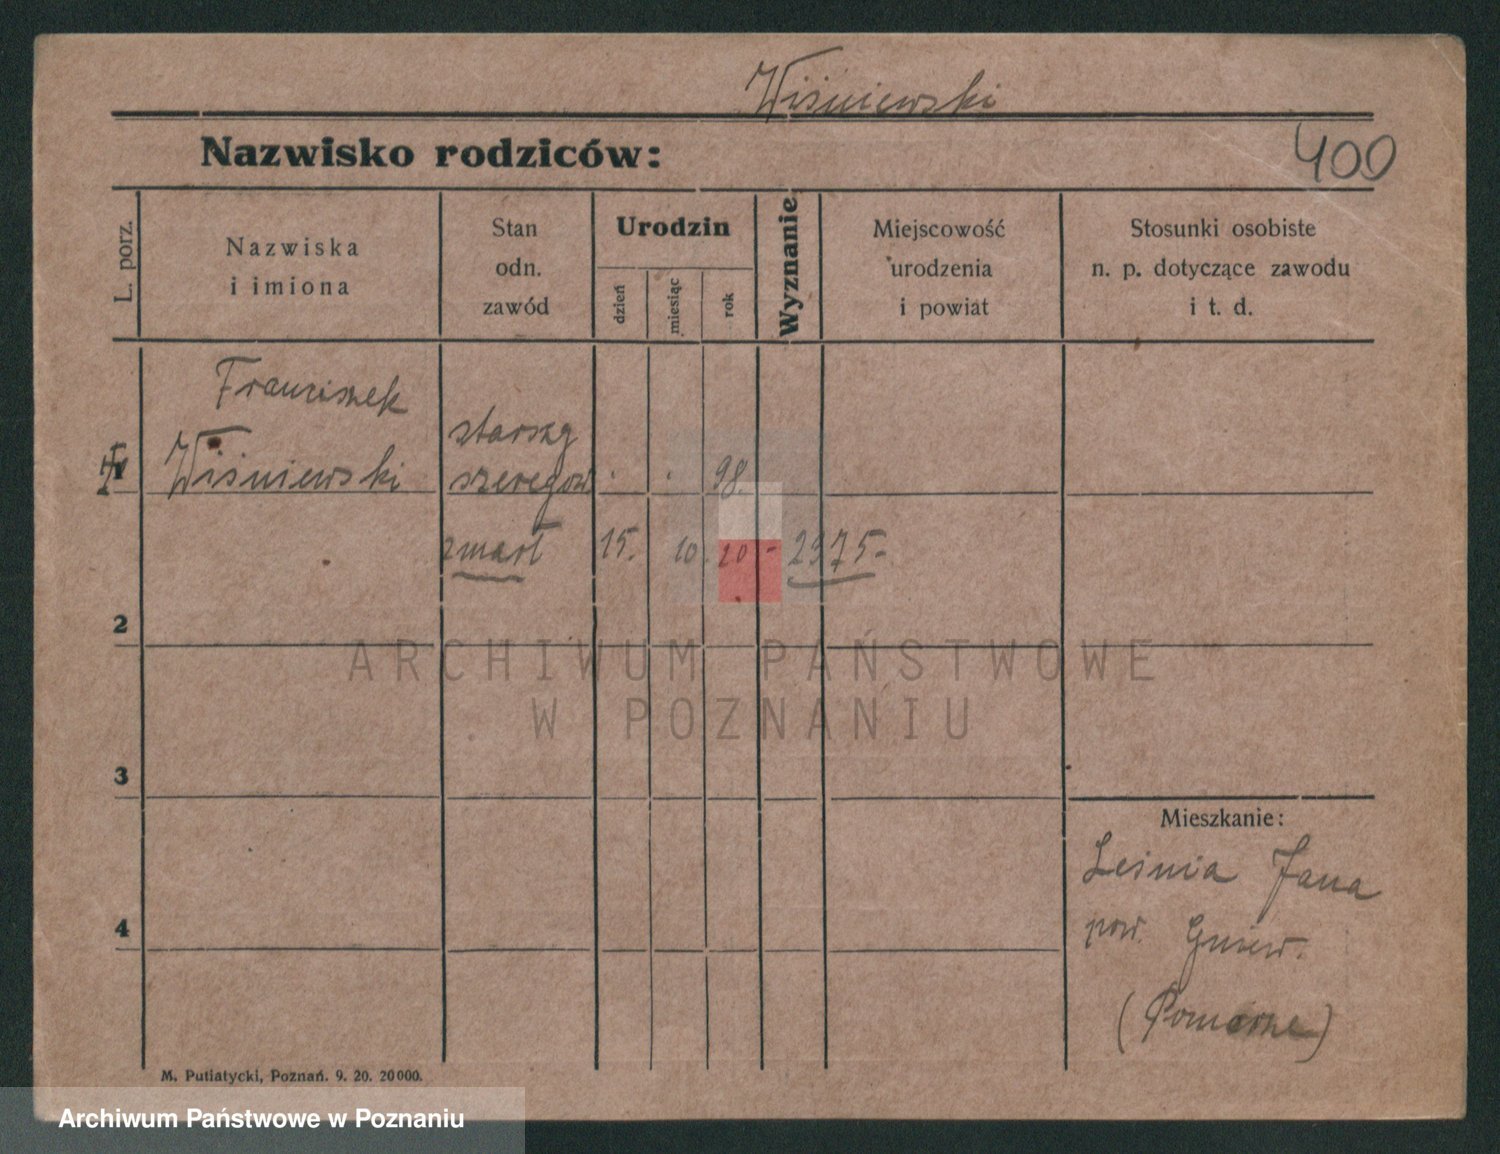 Wiśniewski
Nazwisko rodziców:
400
L. porz.
Nazwiska
i imiona
Stan
odn.
zawód
Urodzin
dzień
miesiąc
rok
Wyznanie
Miejscowość
urodzenia
i powiat
Stosunki osobiste
n. p. dotyczące zawodu
i t. d.
Franciszek
Wiśniewski
starszy
szeregow.
98.
zmarł 15. 10. 20 - 2975-
2
3
4
ARCHIWUM PAŃSTWOWE
W POZNANIU
Mieszkanie:
Leśnia Jana
pow. Gniew.
(Pomorze)
M. Putiatycki, Poznań. 9. 20. 20000.
Archiwum Państwowe w Poznaniu